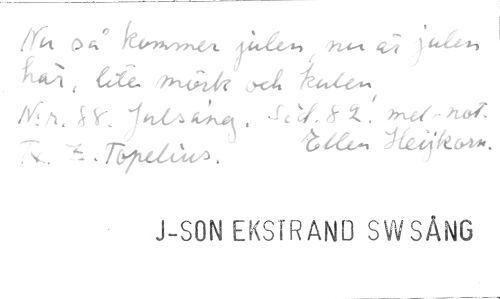 Nu så kommer julen, nu är julen
här, lite mörk och kulen,
N:r. 88. Julsång. Sid. 82. mel-not.
Tx. Z. Topelius. Ellen Heijkorn.
J-SON EKSTRAND SW SÅNG